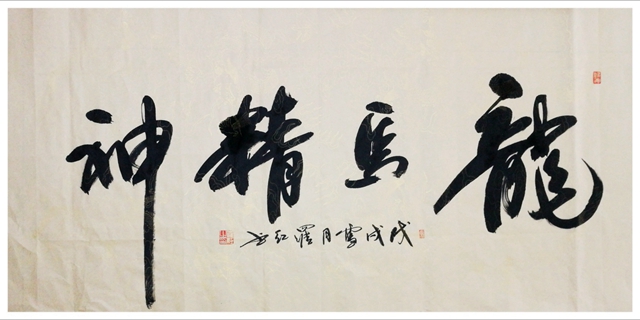 龍馬精神
戊戌雪月羅紅